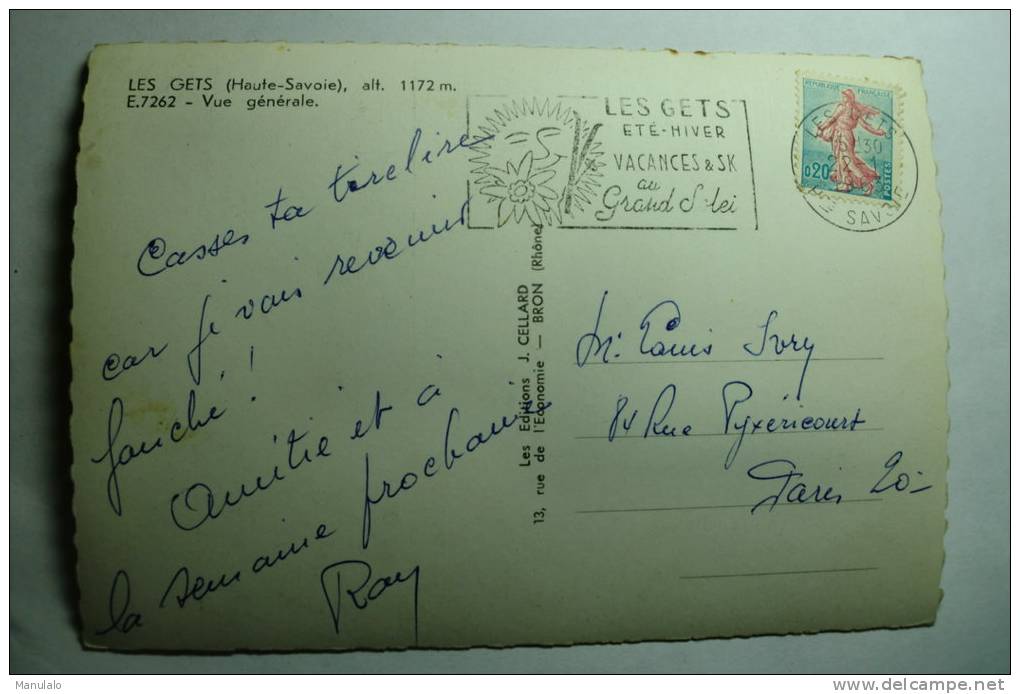 LES GETS (Haute-Savoie), alt. 1172 m.
E.7262 - Vue générale.
Casses ta tirelire
car je vais revenir
fauché !
Amitié et à
la semaine prochaine
Ray
Les Editions J. CELLARD
13, rue de l'Economie — BRON (Rhône)
LES GETS
ETÉ-HIVER
VACANCES & SK
au
Grand S lei
REPUBLIQUE FRANÇAISE
0,20
POSTES
LES GETS
30
22-1
SAVOIE
Mr Louis Ivry
84 Rue Pyxéricourt
Paris 20-
Manulalo
delcampe.net